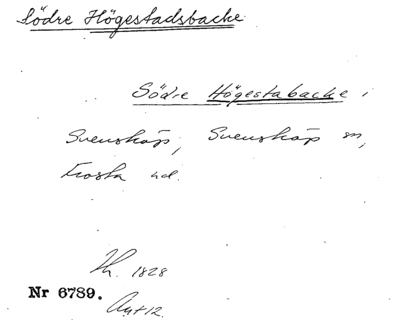 Södre Högestadsbacke
Södre Högestabacke i
Svensköp, Svensköp sn,
Frosta hd.
Th. 1828
Nr 6789.
Avt 12.